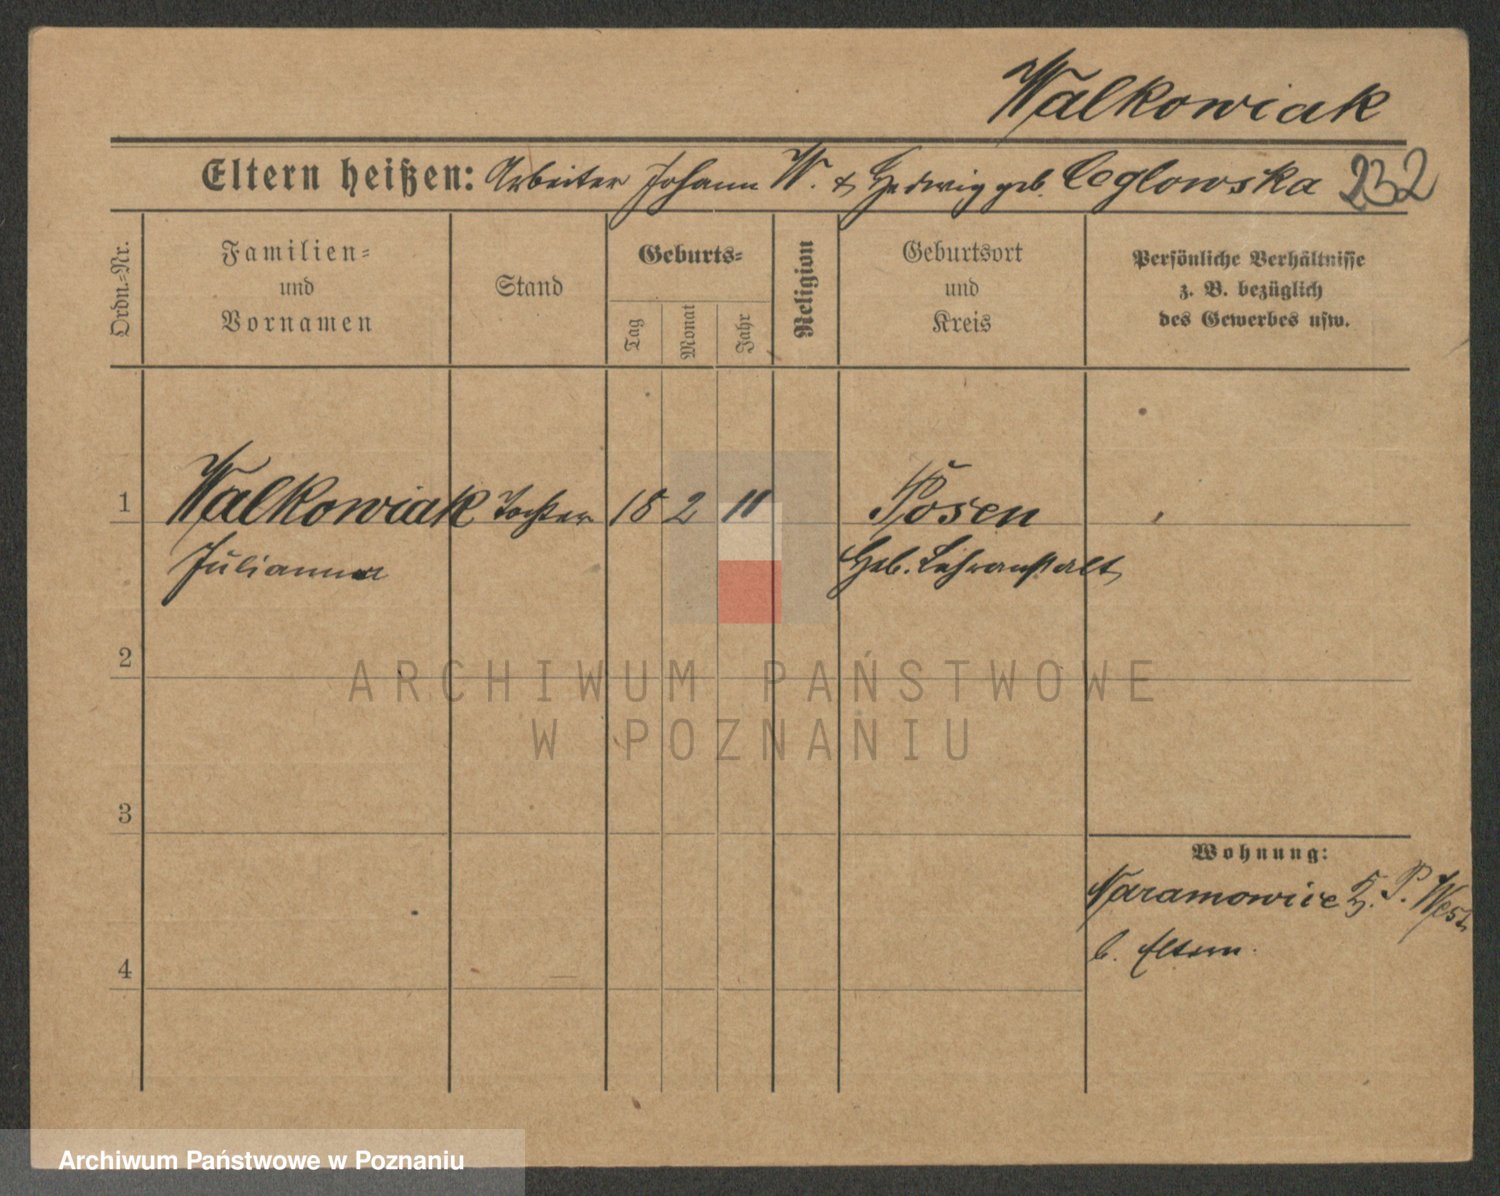 Walkowiak
Eltern heißen: Arbeiter Johann W. & Hedwig geb. Ceglowska 232
Ordn.-Nr.
Familien-
und
Vornamen
Stand
Geburts-
Tag
Monat
Jahr
Religion
Geburtsort
und
Kreis
Persönliche Verhältnisse
z. B. bezüglich
des Gewerbes usw.
1 Walkowiak Tochter 18 2 11 Posen
Julianna Heb. Lehranstalt
2
3
4
Wohnung:
Naramowice P. West
b. Eltern.
ARCHIWUM PAŃSTWOWE
W POZNANIU
Archiwum Państwowe w Poznaniu